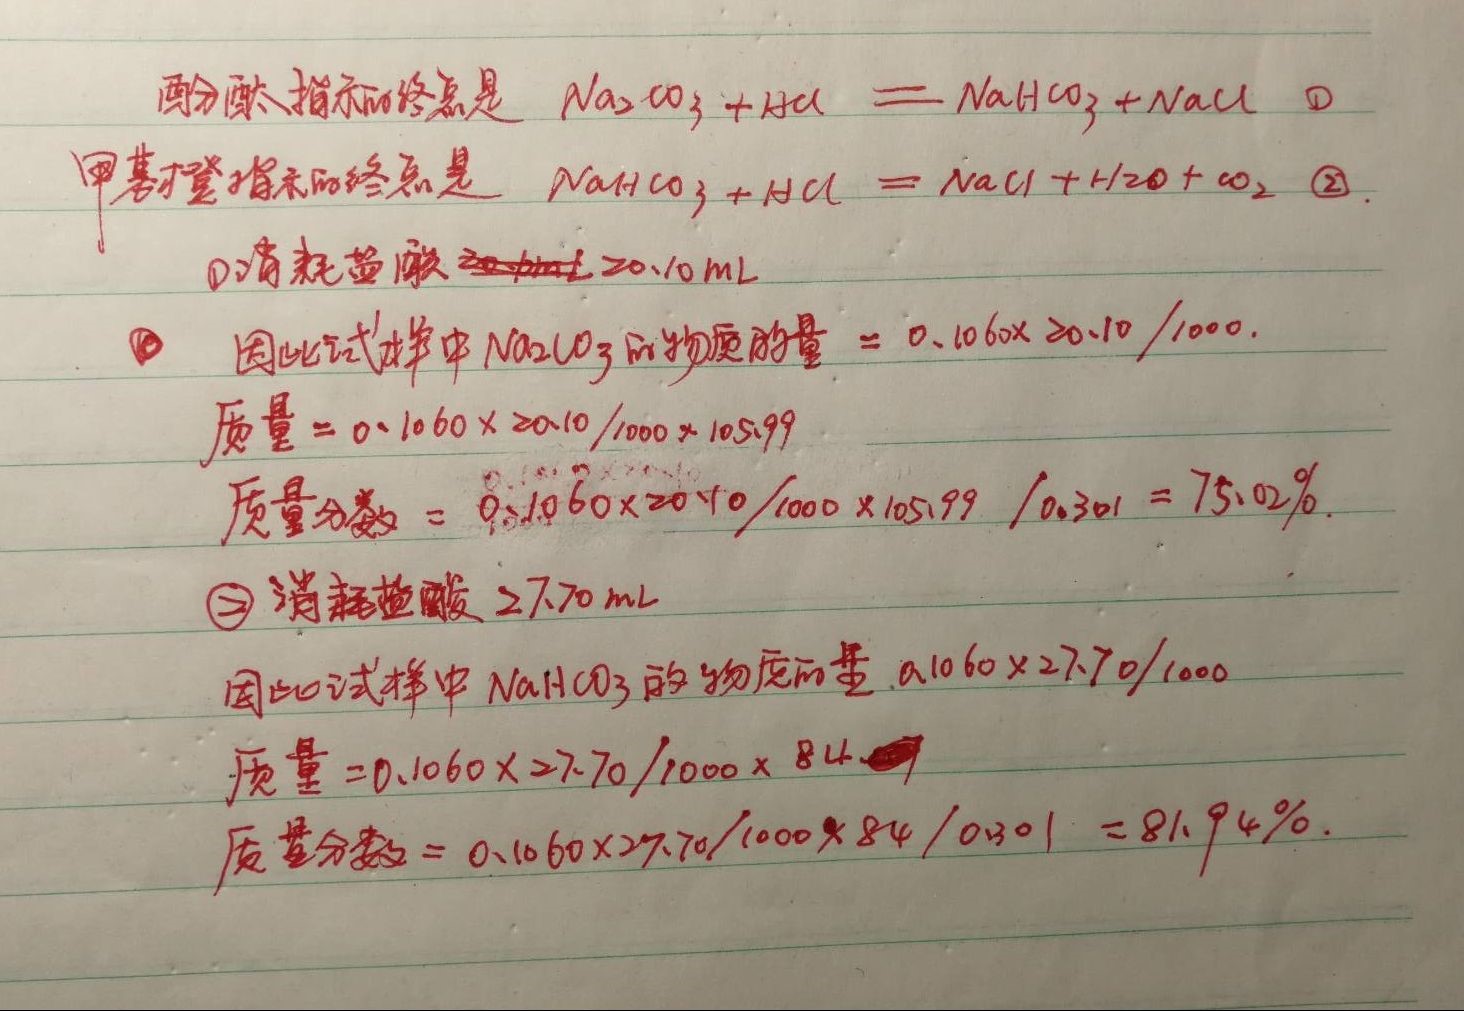 酚酞指示的终点是 Na₂CO₃ + HCl = NaHCO₃ + NaCl ①
甲基橙指示的终点是 NaHCO₃ + HCl = NaCl + H2O + CO₂ ②.
①消耗盐酸 20.10mL
因此试样中Na₂CO₃的物质的量 = 0.1060×20.10/1000.
质量 = 0.1060×20.10/1000×105.99
质量分数 = 0.1060×20.10/1000×105.99/0.301 = 75.02%.
② 消耗盐酸 27.70mL
因此试样中NaHCO₃的物质的量 0.1060×27.70/1000
质量 = 0.1060×27.70/1000×84
质量分数 = 0.1060×27.70/1000×84/0.301 = 81.94%.